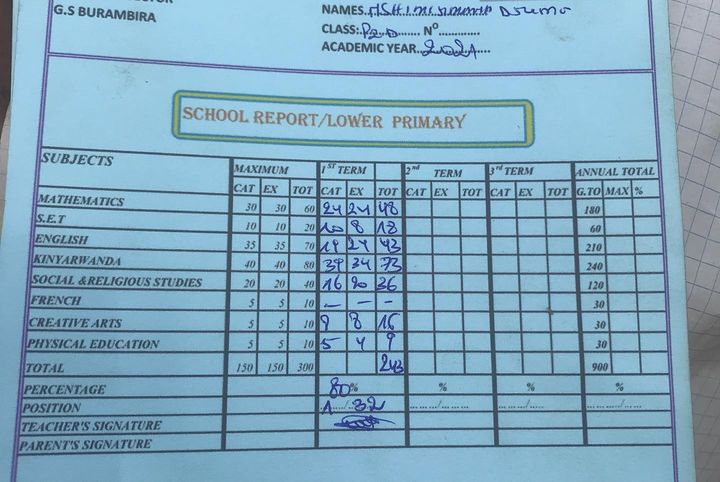 G.S BURAMBIRA
NAMES.
CLASS: P2 D N°
ACADEMIC YEAR 2021
SCHOOL REPORT/LOWER PRIMARY
SUBJECTS MAXIMUM 1ST TERM 2nd TERM 3rd TERM ANNUAL TOTAL
CAT EX TOT CAT EX TOT CAT EX TOT CAT EX TOT G.TO MAX %
MATHEMATICS 30 30 60 24 24 48 180
S.E.T 10 10 20 10 8 18 60
ENGLISH 35 35 70 19 24 43 210
KINYARWANDA 40 40 80 39 34 73 240
SOCIAL &RELIGIOUS STUDIES 20 20 40 16 20 36 120
FRENCH 5 5 10 – – – 30
CREATIVE ARTS 5 5 10 8 8 16 30
PHYSICAL EDUCATION 5 5 10 5 4 9 30
TOTAL 150 150 300 243 900
PERCENTAGE 80% % % %
POSITION 1/32
TEACHER'S SIGNATURE
PARENT'S SIGNATURE